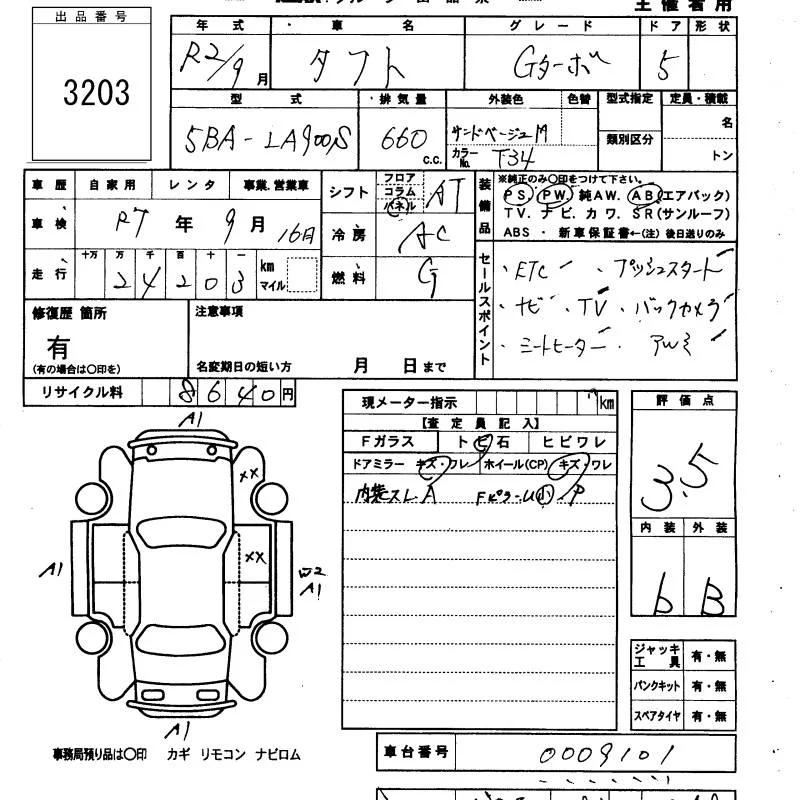 出品番号
3203
主催者用
年式 ・車名 グレード ドア 形状
R2/9月 タフト Gターボ 5
型式 ・排気量 外装色 色替 型式指定 定員・積載
5BA-LA900S 660 c.c. サンドベージュM 類別区分 名
カラーNo. T34 トン
車歴 自家用 レンタ 事業.営業車
車検 R7年 9月 16日
走行 十万 万 千 百 十 一
24203 km マイル
シフト フロア コラム パネル AT
冷房 AC
燃料 G
装備品
※純正のみ〇印をつけて下さい。
PS. PW. 純AW. AB(エアバック)
TV. ナビ. カワ. SR(サンルーフ)
ABS ・ 新車保証書←(注) 後日送りのみ
セールスポイント
・ETC ・プッシュスタート
・ナビ ・TV ・バックカメラ
・シートヒーター ・アルミ
修復歴 箇所
有
(有の場合は〇印を)
注意事項
名変期日の短い方 月 日まで
リサイクル料 8640円
現メーター指示 km
【査定員記入】
Fガラス トビ石 ヒビワレ
ドアミラー キズ・ワレ ホイール(CP) キズ・ワレ
内装スレA FピラーU小 P
評価点
3.5
内装 外装
b B
A1
XX
XX
A1
W2
A1
A1
ジャッキ工具 有・無
パンクキット 有・無
スペアタイヤ 有・無
事務局預り品は〇印 カギ リモコン ナビロム
車台番号 0009101